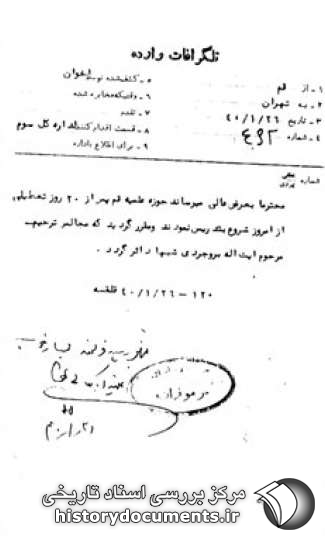 تلگرافات وارده
۱ـ از قم
۲ـ به تهران
۳ـ تاریخ ۴۰/۱/۲۶
۴ـ شماره ۴۹۲
۵ـ کشف‌شده توسط اخوان
۶ـ وقتیکه مخابره شده
۷ـ تقدم
۸ـ قسمت اقدام‌کننده اداره کل سوم
۹ـ برای اطلاع باداره
شماره
محترما بعرض عالی میرساند حوزه علمیه قم پس از ۲۰ روز تعطیلی
از امروز شروع بتدریس نمودند ومقرر گردید که مجالس ترحیم
مرحوم ایت اله بروجردی شبها دائر گردد .
۱۲۰ – ۴۰/۱/۲۶ قلقسه
مرکز بررسی اسناد تاریخی
historydocuments.ir